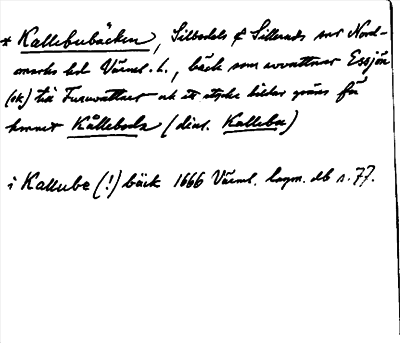 * Kallebubäcken, Silbodals & Silleruds snr Nord-
marks hd Värml. l., bäck som avvattnar Essjön
(ek) till Furuvattnet och ett stycke bildar gräns för
hemnet Kålleboda (dial. Kallebu)
i Kallube (!) bäck 1666 Värml. lagm. db s. 77.